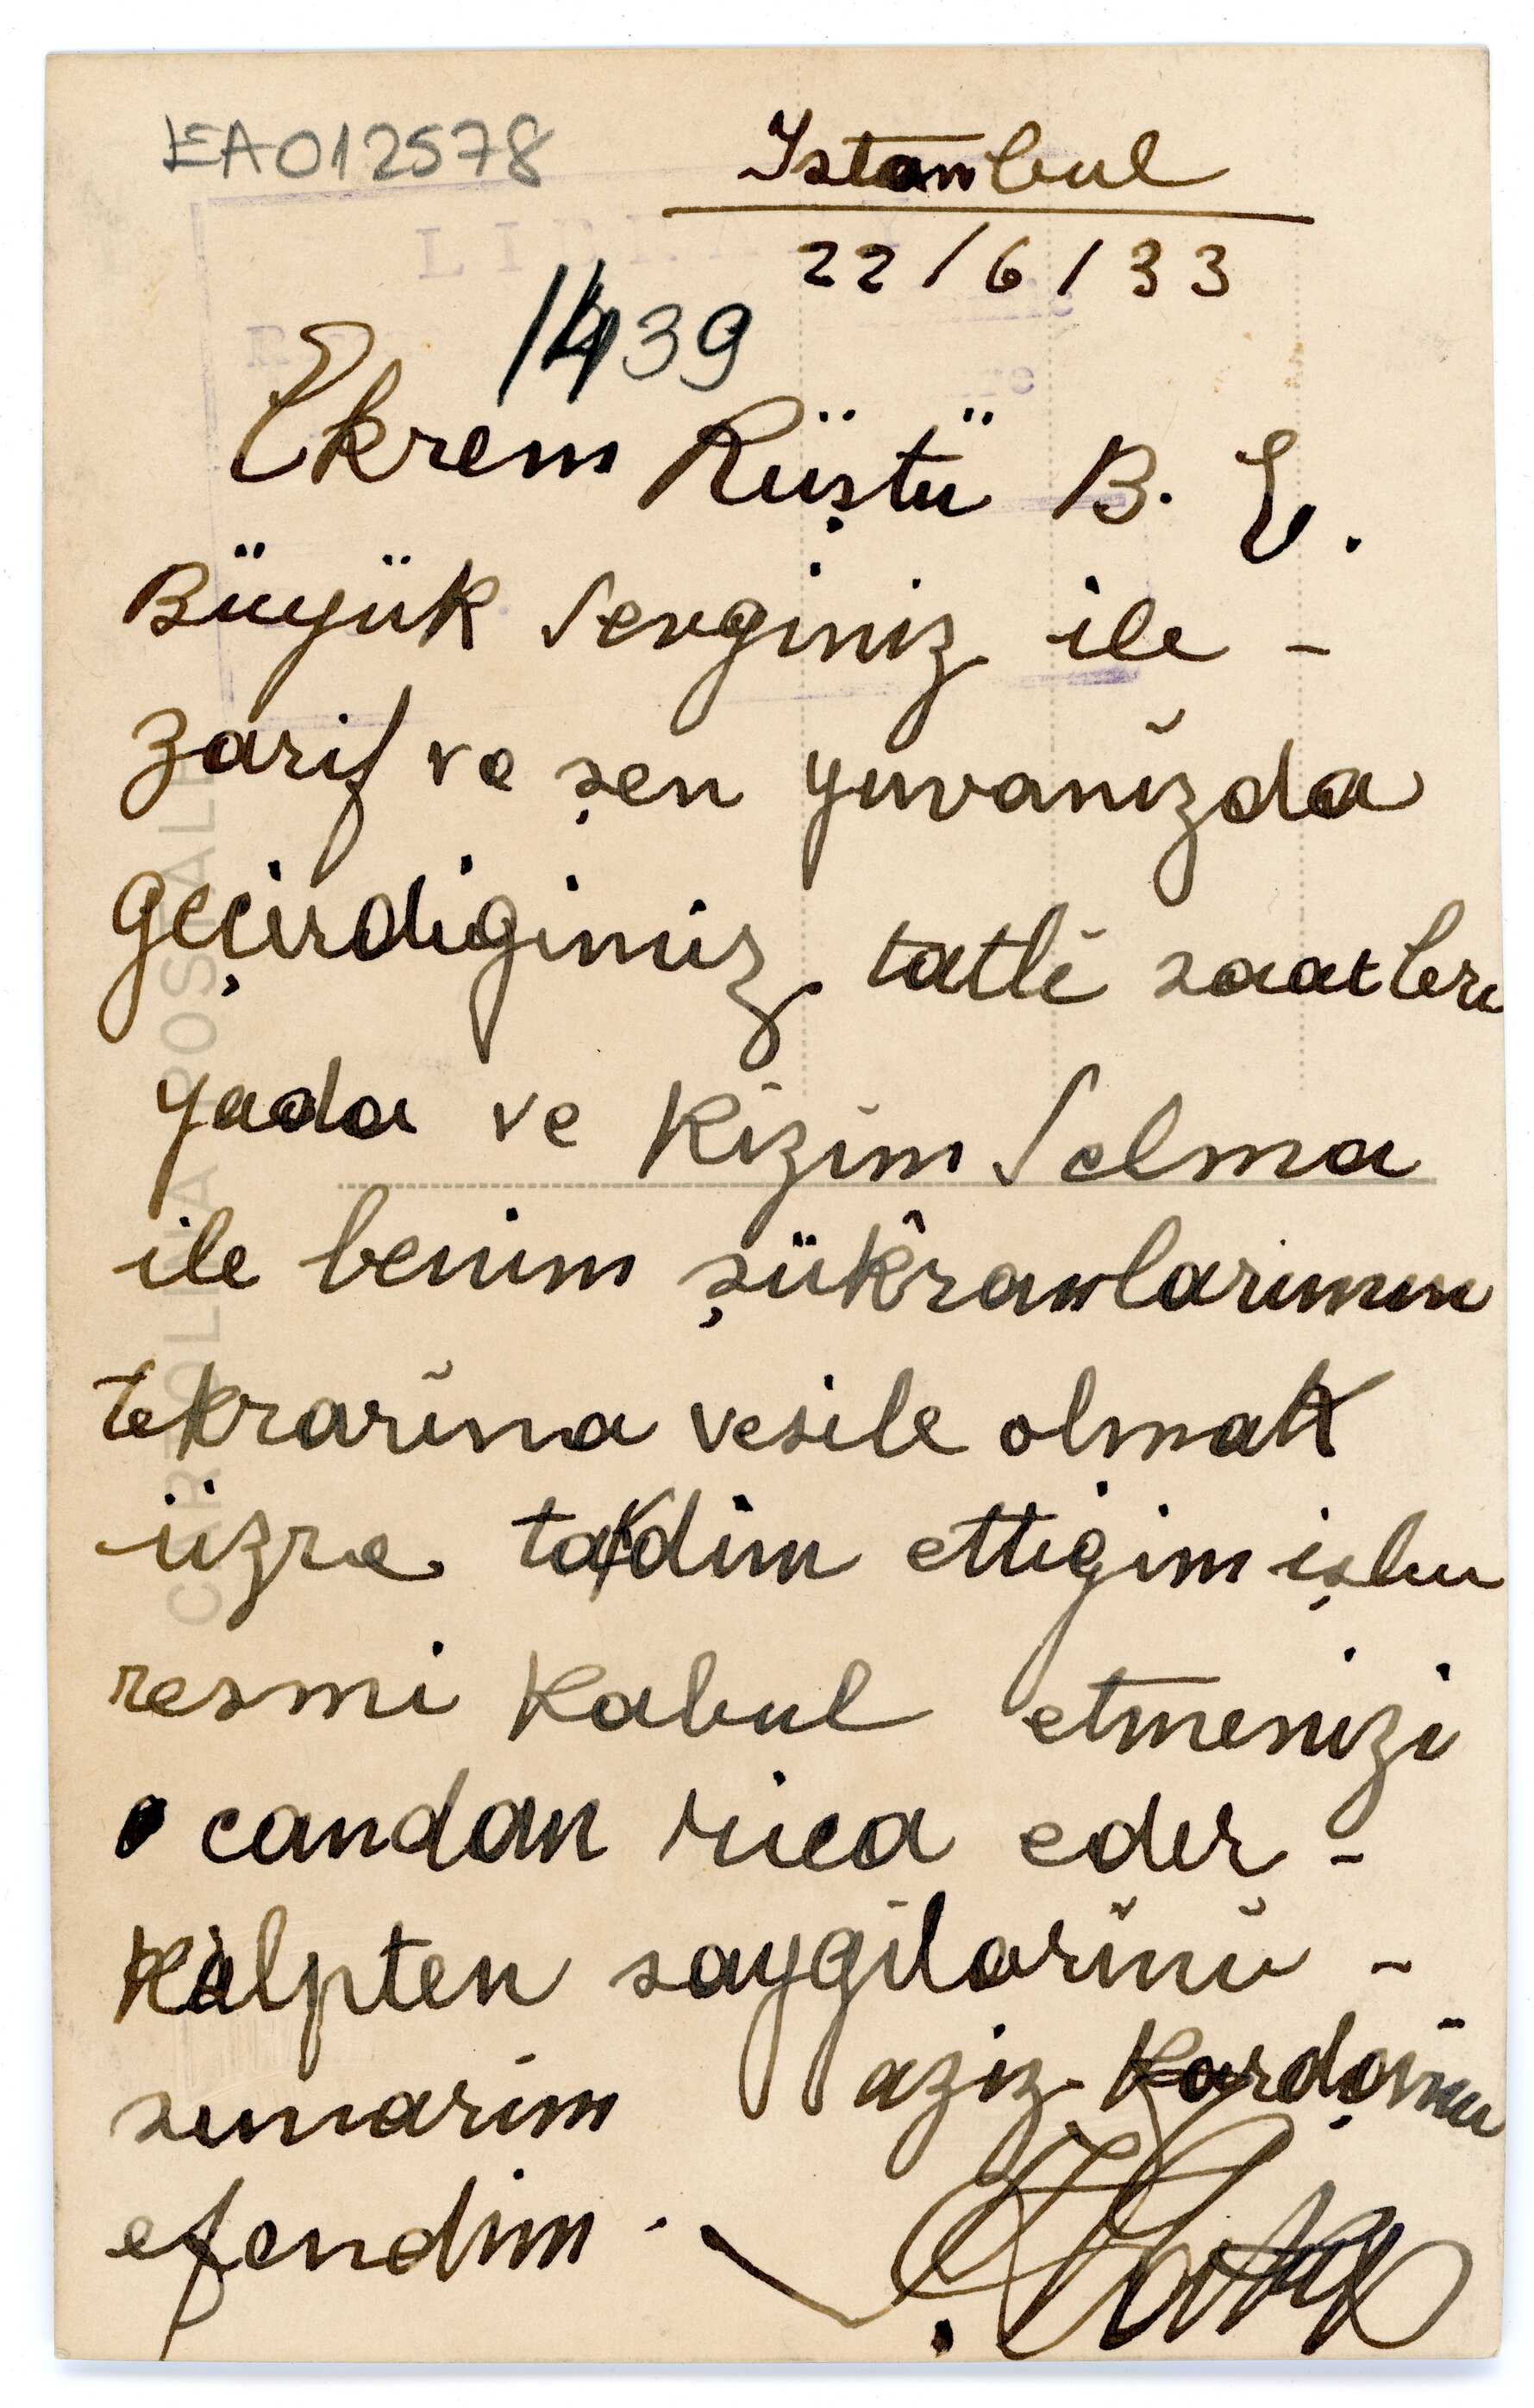 EA012578
Istanbul
22/6/33
1439
Ekrem Rüştü B. E.
Büyük Sevginiz ile -
zarif ve şen yuvanızda
geçirdigimiz tatli saatleri
yada ve Kizim Selma
ile benim şükrânlarimin
tekrarına vesile olmak
üzre takdim ettigim işbu
resmi Kabul etmenizi
candan rica eder -
Kalpten saygilarımı -
sunarim aziz Kardaşım
efendim.
CARTOLINA POSTALE